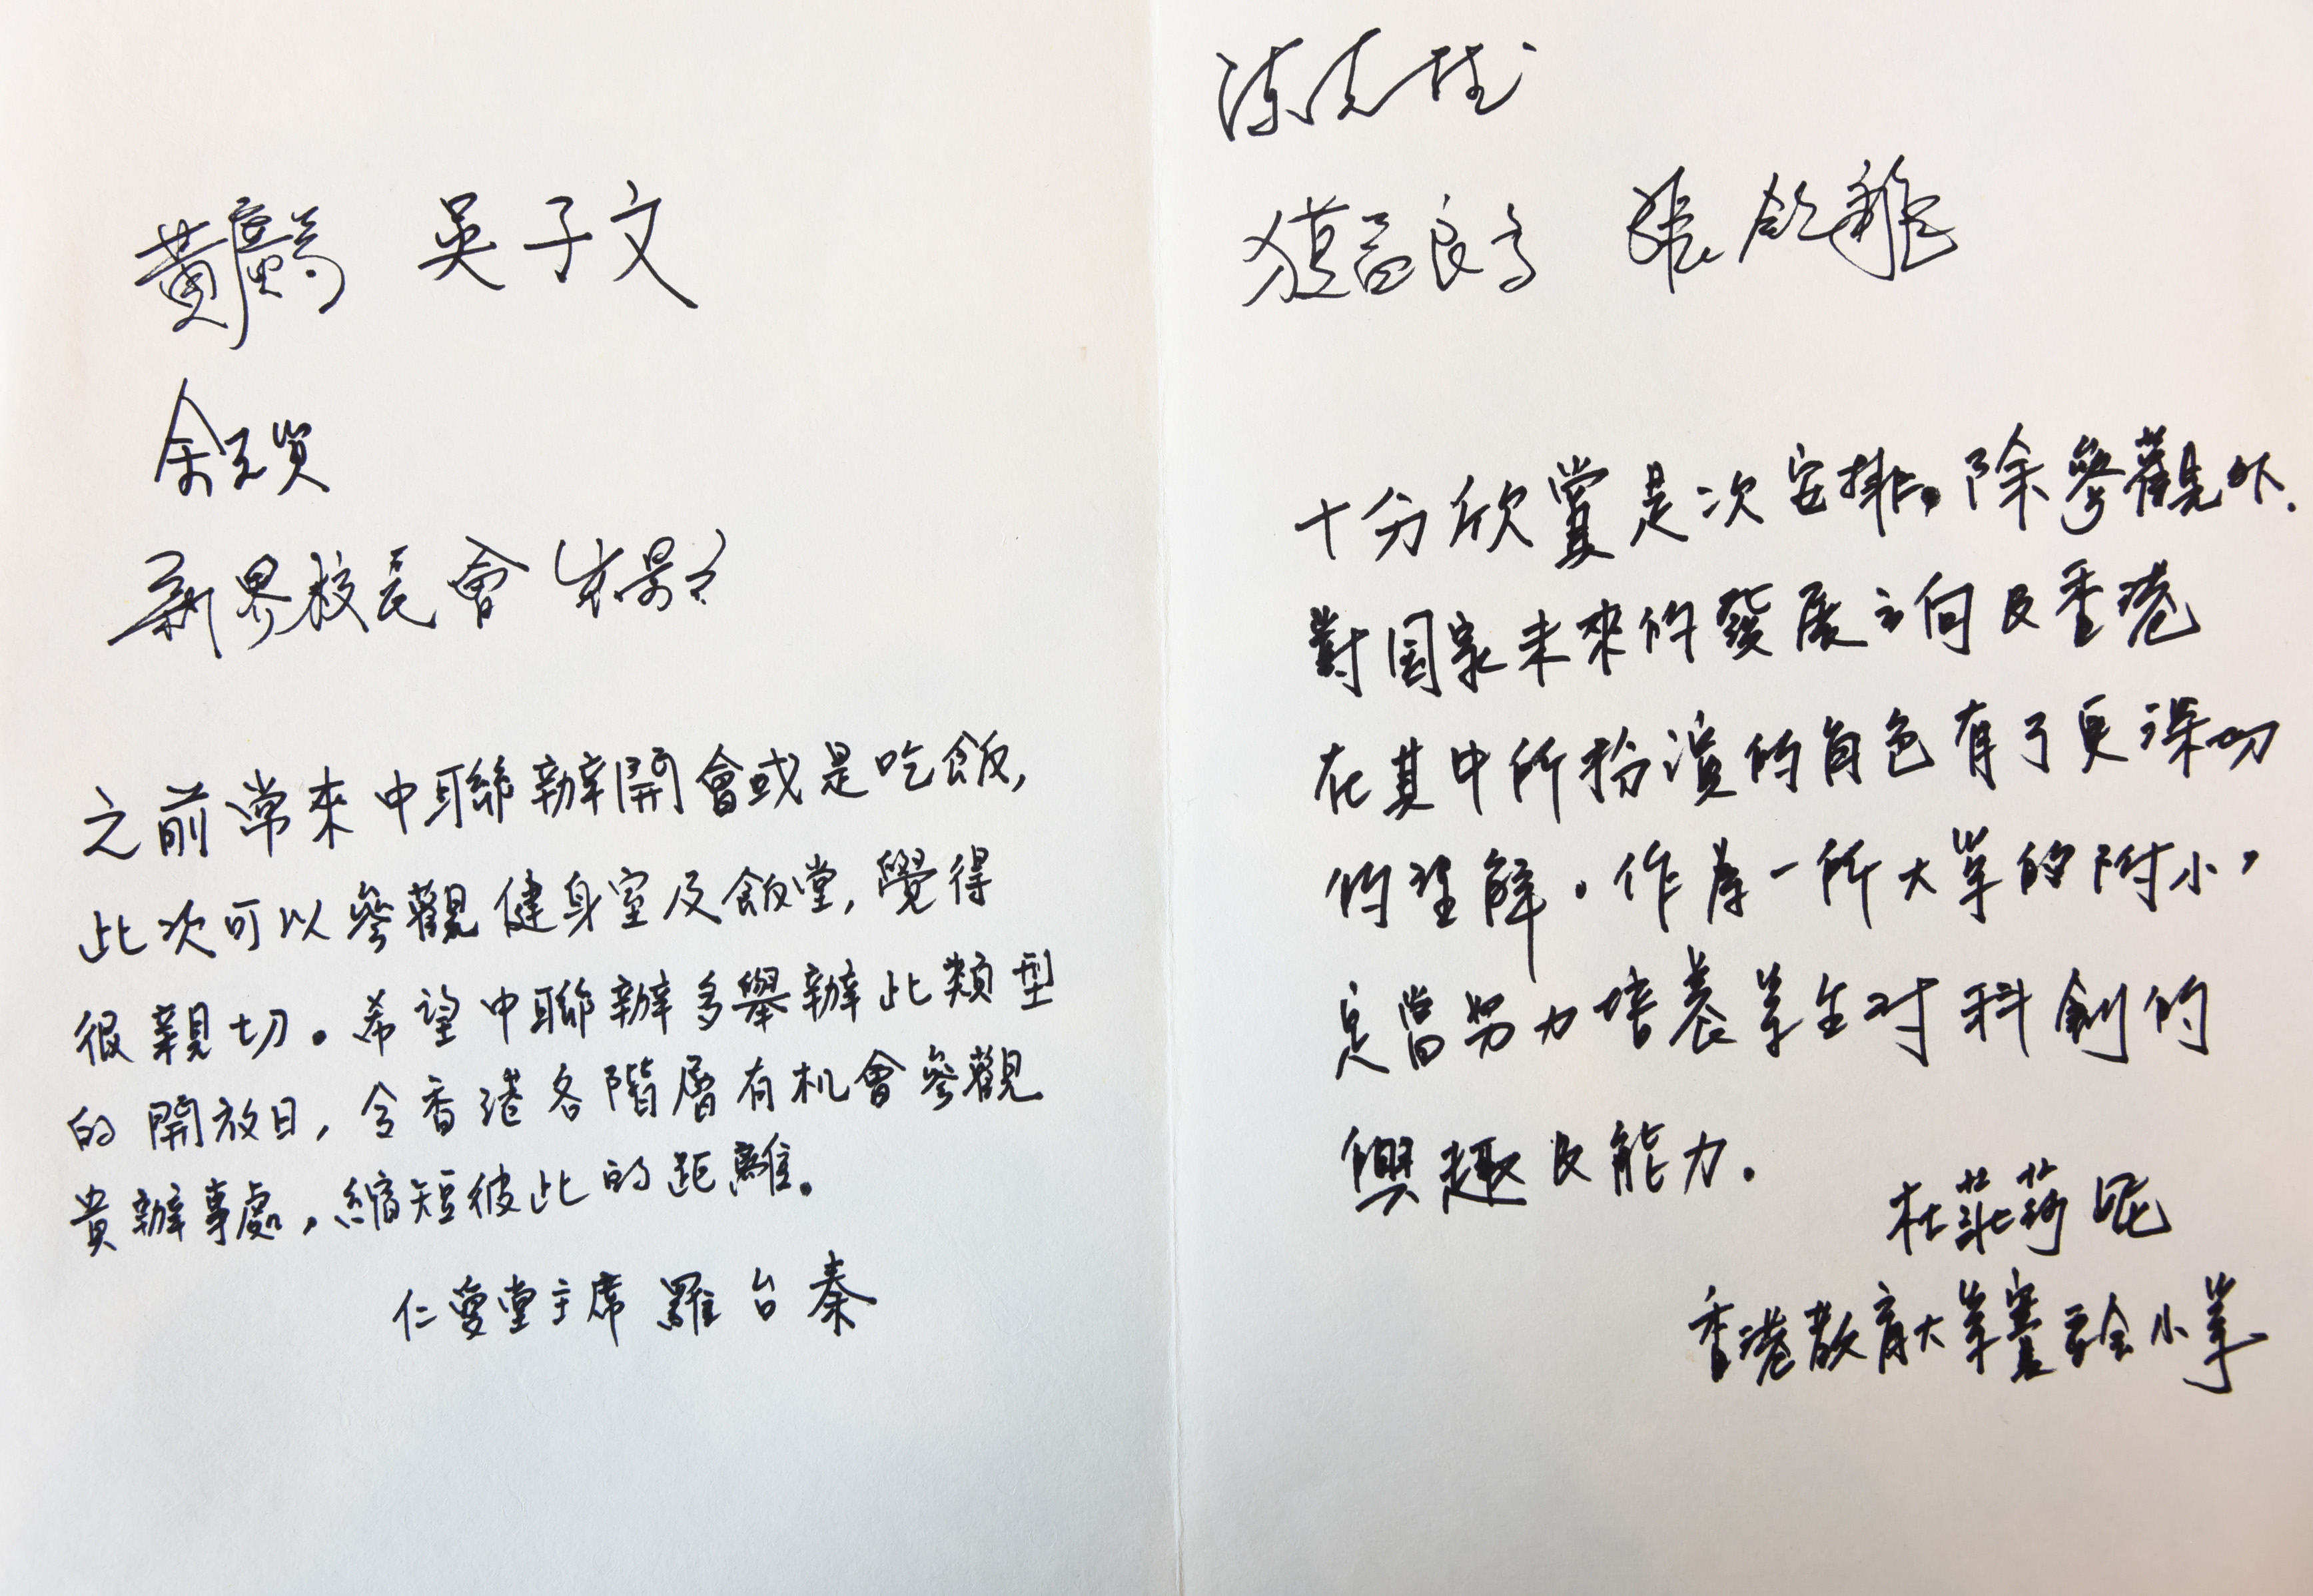 吳子文
新界校長會 朱景玄
之前常來中聯辦開會或是吃飯,
此次可以參觀健身室及飯堂,覺得
很親切。希望中聯辦多舉辦此類型
的開放日,令香港各階層有机會參觀
貴辦事處,縮短彼此的距離。
仁愛堂主席 羅台秦
十分欣賞是次安排。除參觀外,
對国家未來的發展方向及香港
在其中所扮演的角色有了更深切
的理解。作為一所大学的附小,
定當努力培養学生对科創的
興趣及能力。
杜莊莎妮
香港教育大学賽馬會小学